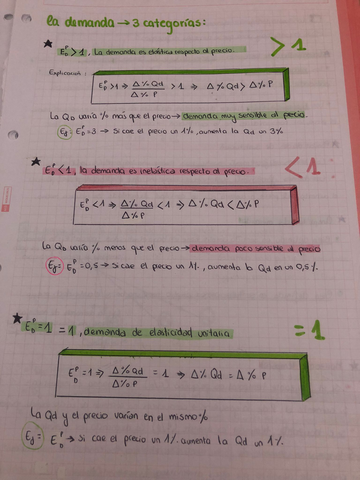 la demanda → 3 categorías:
★ E_D^P > 1, La demanda es elástica respecto al precio. > 1
Explicación:
E_D^P > 1 ⇒ Δ% Qd / Δ% P > 1 ⇒ Δ% Qd > Δ% P
La Q_D varía % más que el precio → demanda muy sensible al precio.
Ej E_D^P = 3 → Si cae el precio un 1%, aumenta la Qd un 3%
★ E_D^P < 1, la demanda es inelástica respecto al precio. < 1
E_D^P < 1 ⇒ Δ% Qd / Δ% P < 1 ⇒ Δ% Qd < Δ% P
La Q_D varía % menos que el precio → demanda poco sensible al precio
Ej = E_D^P = 0,5 → Si cae el precio un 1%, aumenta la Qd en un 0,5%.
★ E_D^P = 1 = 1, demanda de elasticidad unitaria = 1
E_D^P = 1 ⇒ Δ% Qd / Δ% P = 1 ⇒ Δ% Qd = Δ% P
La Qd y el precio varían en el mismo %
Ej = E_D^P → si cae el precio un 1% aumenta la Qd un 1%.